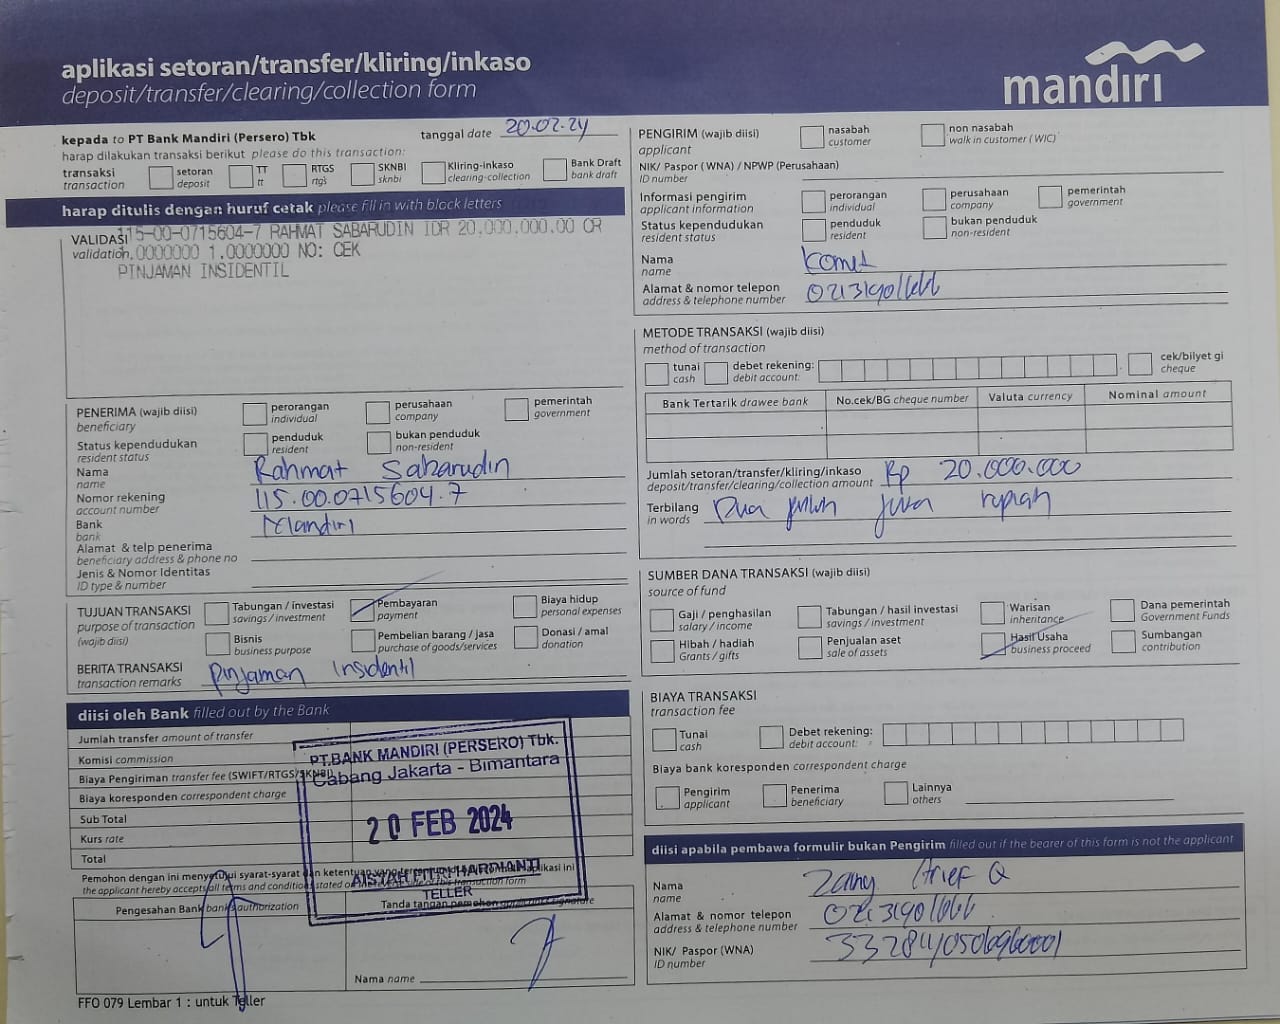 aplikasi setoran/transfer/kliring/inkaso
deposit/transfer/clearing/collection form
mandiri
kepada to PT Bank Mandiri (Persero) Tbk
tanggal date 20.02.24
harap dilakukan transaksi berikut please do this transaction:
transaksi transaction
setoran deposit
TT tt
RTGS rtgs
SKNBI sknbi
Kliring-inkaso clearing-collection
Bank Draft bank draft
harap ditulis dengan huruf cetak please fill in with block letters
VALIDASI validation
115-00-0715604-7 RAHMAT SABARUDIN IDR 20,000,000.00 CR
.0000000 1.0000000 NO: CEK
PINJAMAN INSIDENTIL
PENERIMA (wajib diisi) beneficiary
perorangan individual
perusahaan company
pemerintah government
Status kependudukan resident status
penduduk resident
bukan penduduk non-resident
Nama name Rahmat Sabarudin
Nomor rekening account number 115.00.0715604.7
Bank bank Mandiri
Alamat & telp penerima beneficiary address & phone no
Jenis & Nomor Identitas ID type & number
TUJUAN TRANSAKSI purpose of transaction (wajib diisi)
Tabungan / investasi savings / investment
Pembayaran payment
Biaya hidup personal expenses
Bisnis business purpose
Pembelian barang / jasa purchase of goods/services
Donasi / amal donation
BERITA TRANSAKSI transaction remarks Pinjaman Insidentil
diisi oleh Bank filled out by the Bank
Jumlah transfer amount of transfer
Komisi commission
Biaya Pengiriman transfer fee (SWIFT/RTGS/SKNBI)
Biaya koresponden correspondent charge
Sub Total
Kurs rate
Total
PT.BANK MANDIRI (PERSERO) Tbk.
Cabang Jakarta - Bimantara
20 FEB 2024
AISYAH FITRI HARDIANTI
TELLER
Pemohon dengan ini menyetujui syarat-syarat dan ketentuan aplikasi ini
the applicant hereby accepts all terms and conditions stated on transaction form
Pengesahan Bank bank's authorization
Tanda tangan pemohon applicant signature
Nama name
FFO 079 Lembar 1 : untuk Teller
PENGIRIM (wajib diisi) applicant
nasabah customer
non nasabah walk in customer (WIC)
NIK/ Paspor (WNA) / NPWP (Perusahaan) ID number
Informasi pengirim applicant information
perorangan individual
perusahaan company
pemerintah government
Status kependudukan resident status
penduduk resident
bukan penduduk non-resident
Nama name
Alamat & nomor telepon address & telephone number
METODE TRANSAKSI (wajib diisi) method of transaction
tunai cash
debet rekening: debit account:
cek/bilyet gi cheque
Bank Tertarik drawee bank
No.cek/BG cheque number
Valuta currency
Nominal amount
Jumlah setoran/transfer/kliring/inkaso deposit/transfer/clearing/collection amount Rp 20.000.000
Terbilang in words Dua puluh juta rupiah
SUMBER DANA TRANSAKSI (wajib diisi) source of fund
Gaji / penghasilan salary / income
Tabungan / hasil investasi savings / investment
Warisan inheritance
Dana pemerintah Government Funds
Hibah / hadiah Grants / gifts
Penjualan aset sale of assets
Hasil Usaha business proceed
Sumbangan contribution
BIAYA TRANSAKSI transaction fee
Tunai cash
Debet rekening: debit account:
Biaya bank koresponden correspondent charge
Pengirim applicant
Penerima beneficiary
Lainnya others
diisi apabila pembawa formulir bukan Pengirim filled out if the bearer of this form is not the applicant
Nama name
Alamat & nomor telepon address & telephone number
NIK/ Paspor (WNA) ID number